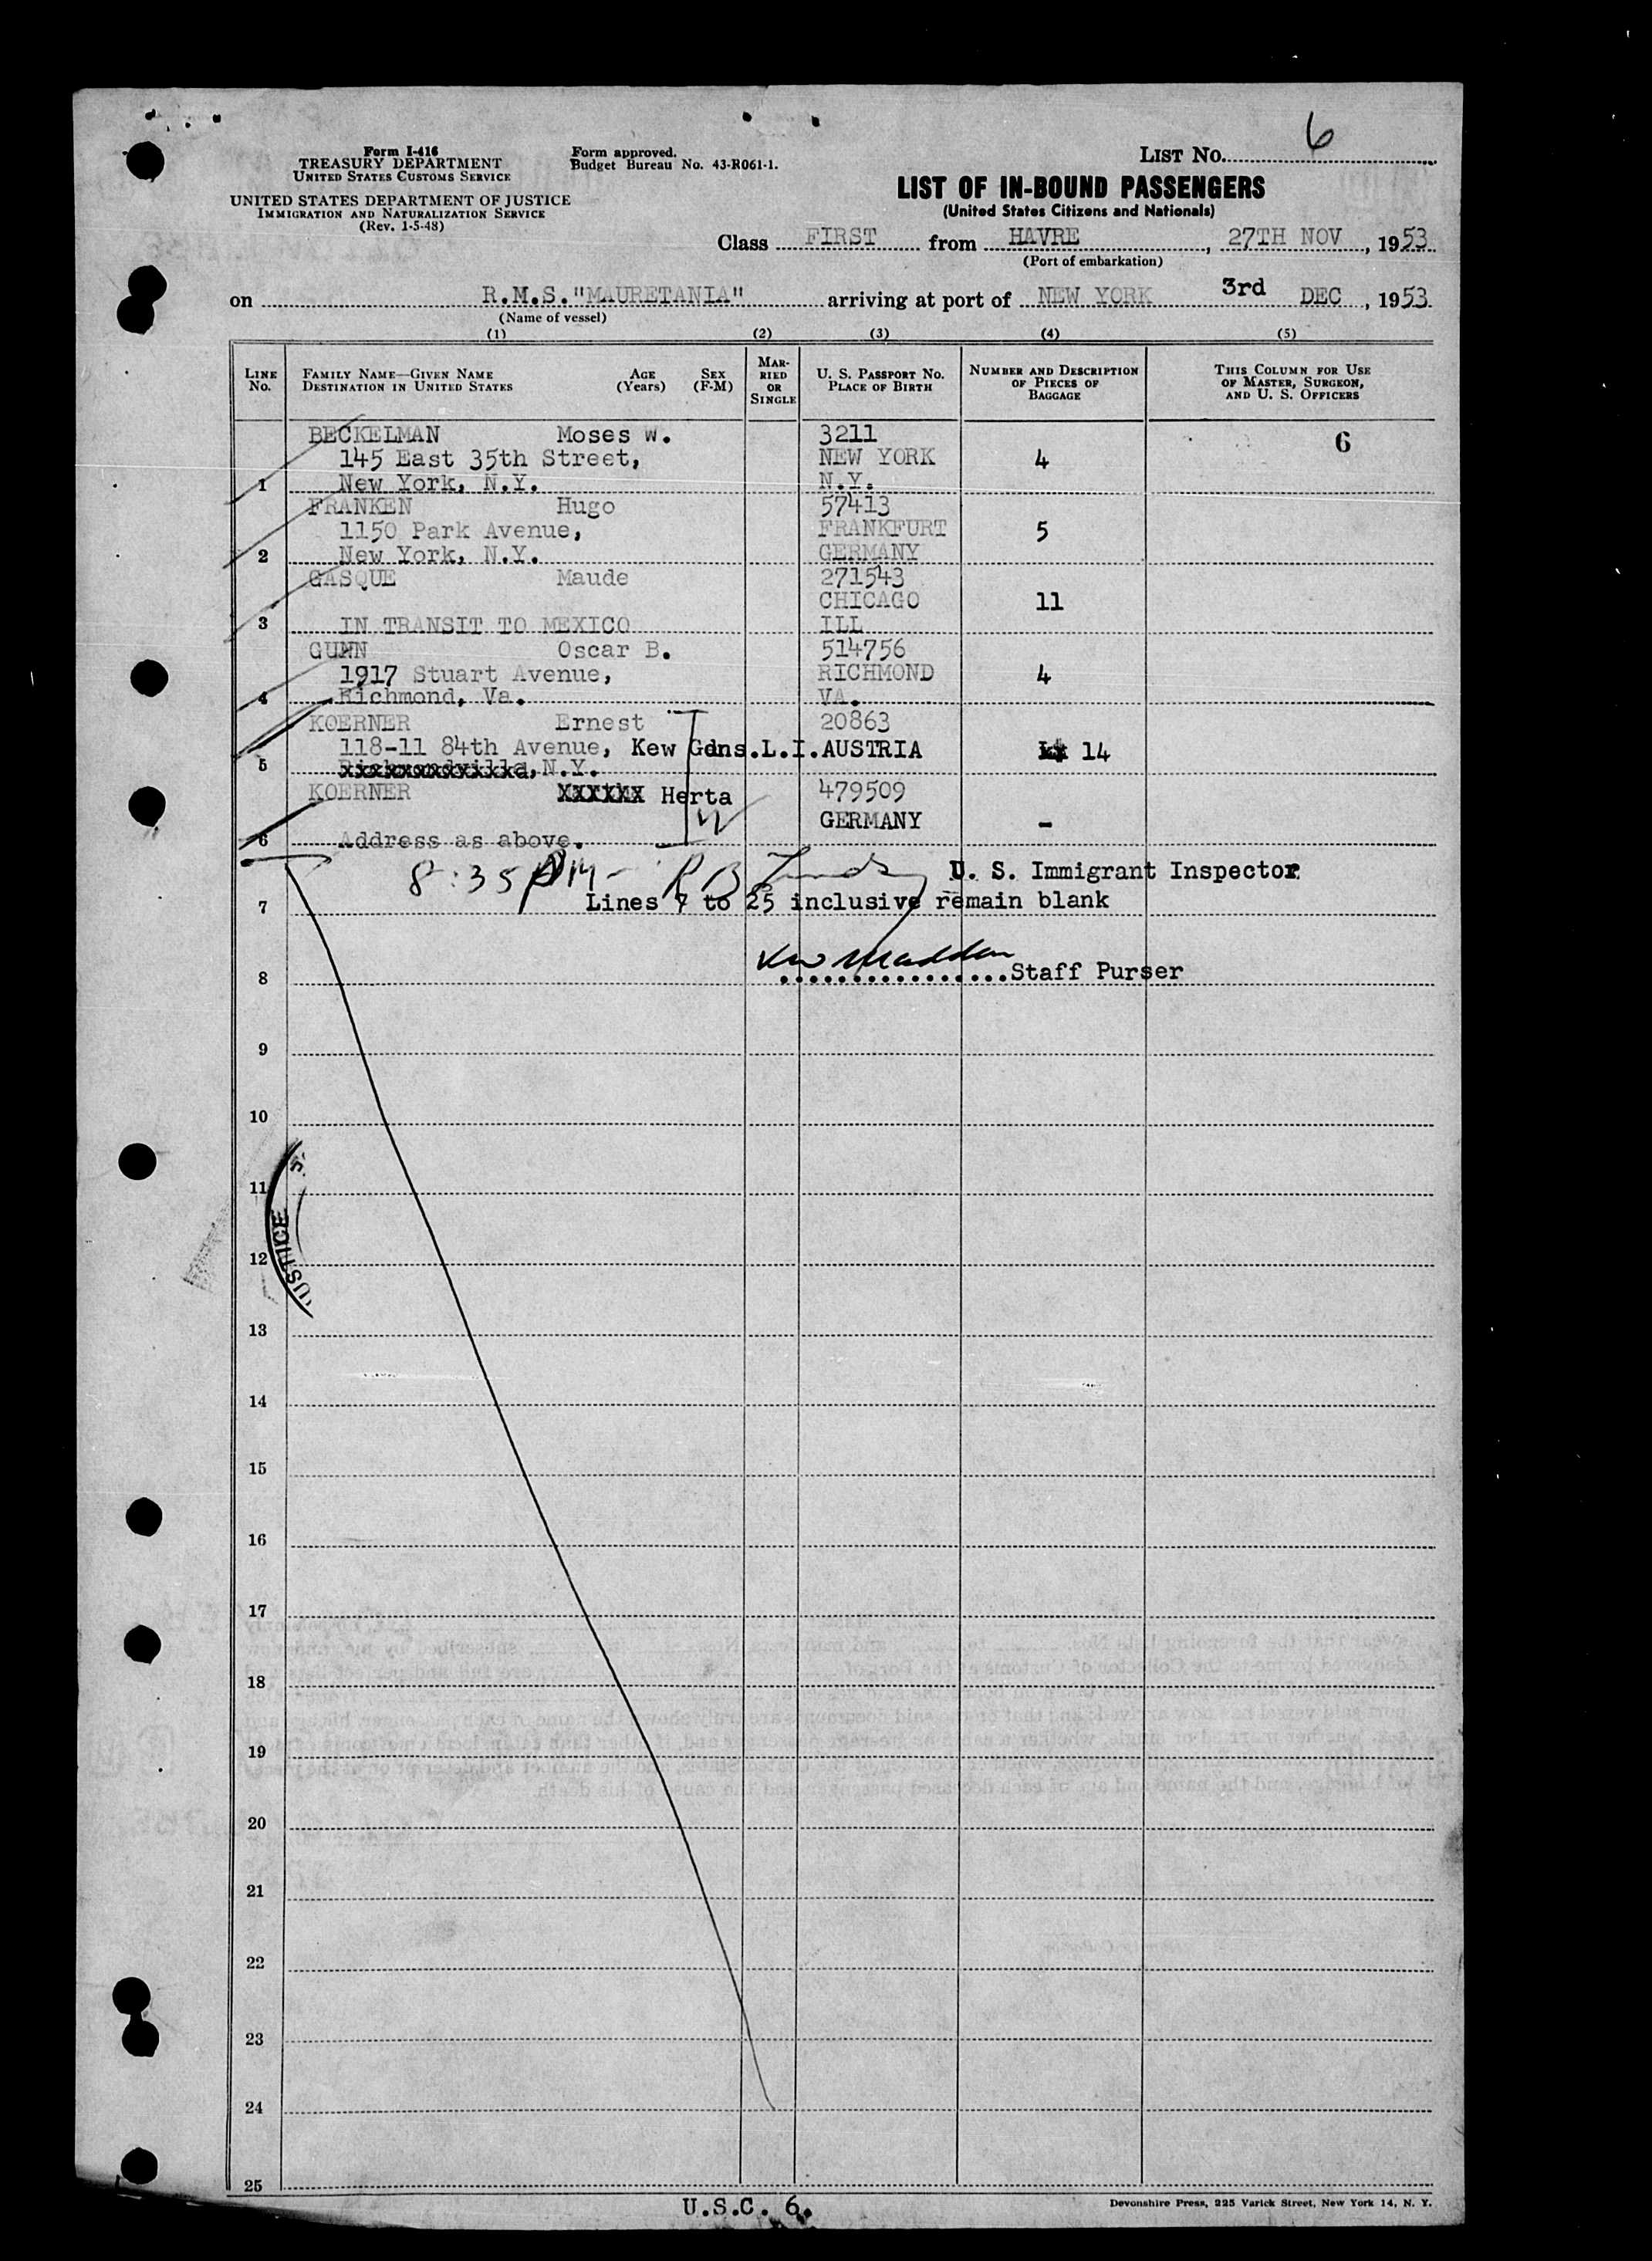 6
Form I-416
TREASURY DEPARTMENT
UNITED STATES CUSTOMS SERVICE
UNITED STATES DEPARTMENT OF JUSTICE
IMMIGRATION AND NATURALIZATION SERVICE
(Rev. 1-5-48)
Form approved.
Budget Bureau No. 43-R061-1.
LIST No.
LIST OF IN-BOUND PASSENGERS
(United States Citizens and Nationals)
Class FIRST from HAVRE, 27TH NOV, 1953
(Port of embarkation)
on R.M.S."MAURETANIA" arriving at port of NEW YORK 3rd DEC, 1953
(Name of vessel)
(1) (2) (3) (4) (5)
LINE No.
FAMILY NAME—GIVEN NAME
DESTINATION IN UNITED STATES
AGE (Years)
SEX (F-M)
MARRIED OR SINGLE
U. S. PASSPORT NO.
PLACE OF BIRTH
NUMBER AND DESCRIPTION OF PIECES OF BAGGAGE
THIS COLUMN FOR USE OF MASTER, SURGEON, AND U. S. OFFICERS
BECKELMAN Moses W. 3211 6
145 East 35th Street, NEW YORK 4
1 New York, N.Y. N.Y.
FRANKEN Hugo 57413
1150 Park Avenue, FRANKFURT 5
2 New York, N.Y. GERMANY
GASQUE Maude 271543
CHICAGO 11
3 IN TRANSIT TO MEXICO ILL
GUNN Oscar B. 514756
1917 Stuart Avenue, RICHMOND 4
4 Richmond, Va. VA.
KOERNER Ernest 20863
118-11 84th Avenue, Kew Gdns.L.I. AUSTRIA 14
5 N.Y.
KOERNER XXXXXX Herta 479509
GERMANY -
6 Address as above.
8:35 PM- R B U. S. Immigrant Inspector
7 Lines 7 to 25 inclusive remain blank
Madden
8 ................Staff Purser
9
10
11
USTICE
12
13
14
15
16
17
18
19
20
21
22
23
24
25
U.S.C. 6.
Devonshire Press, 225 Varick Street, New York 14, N. Y.